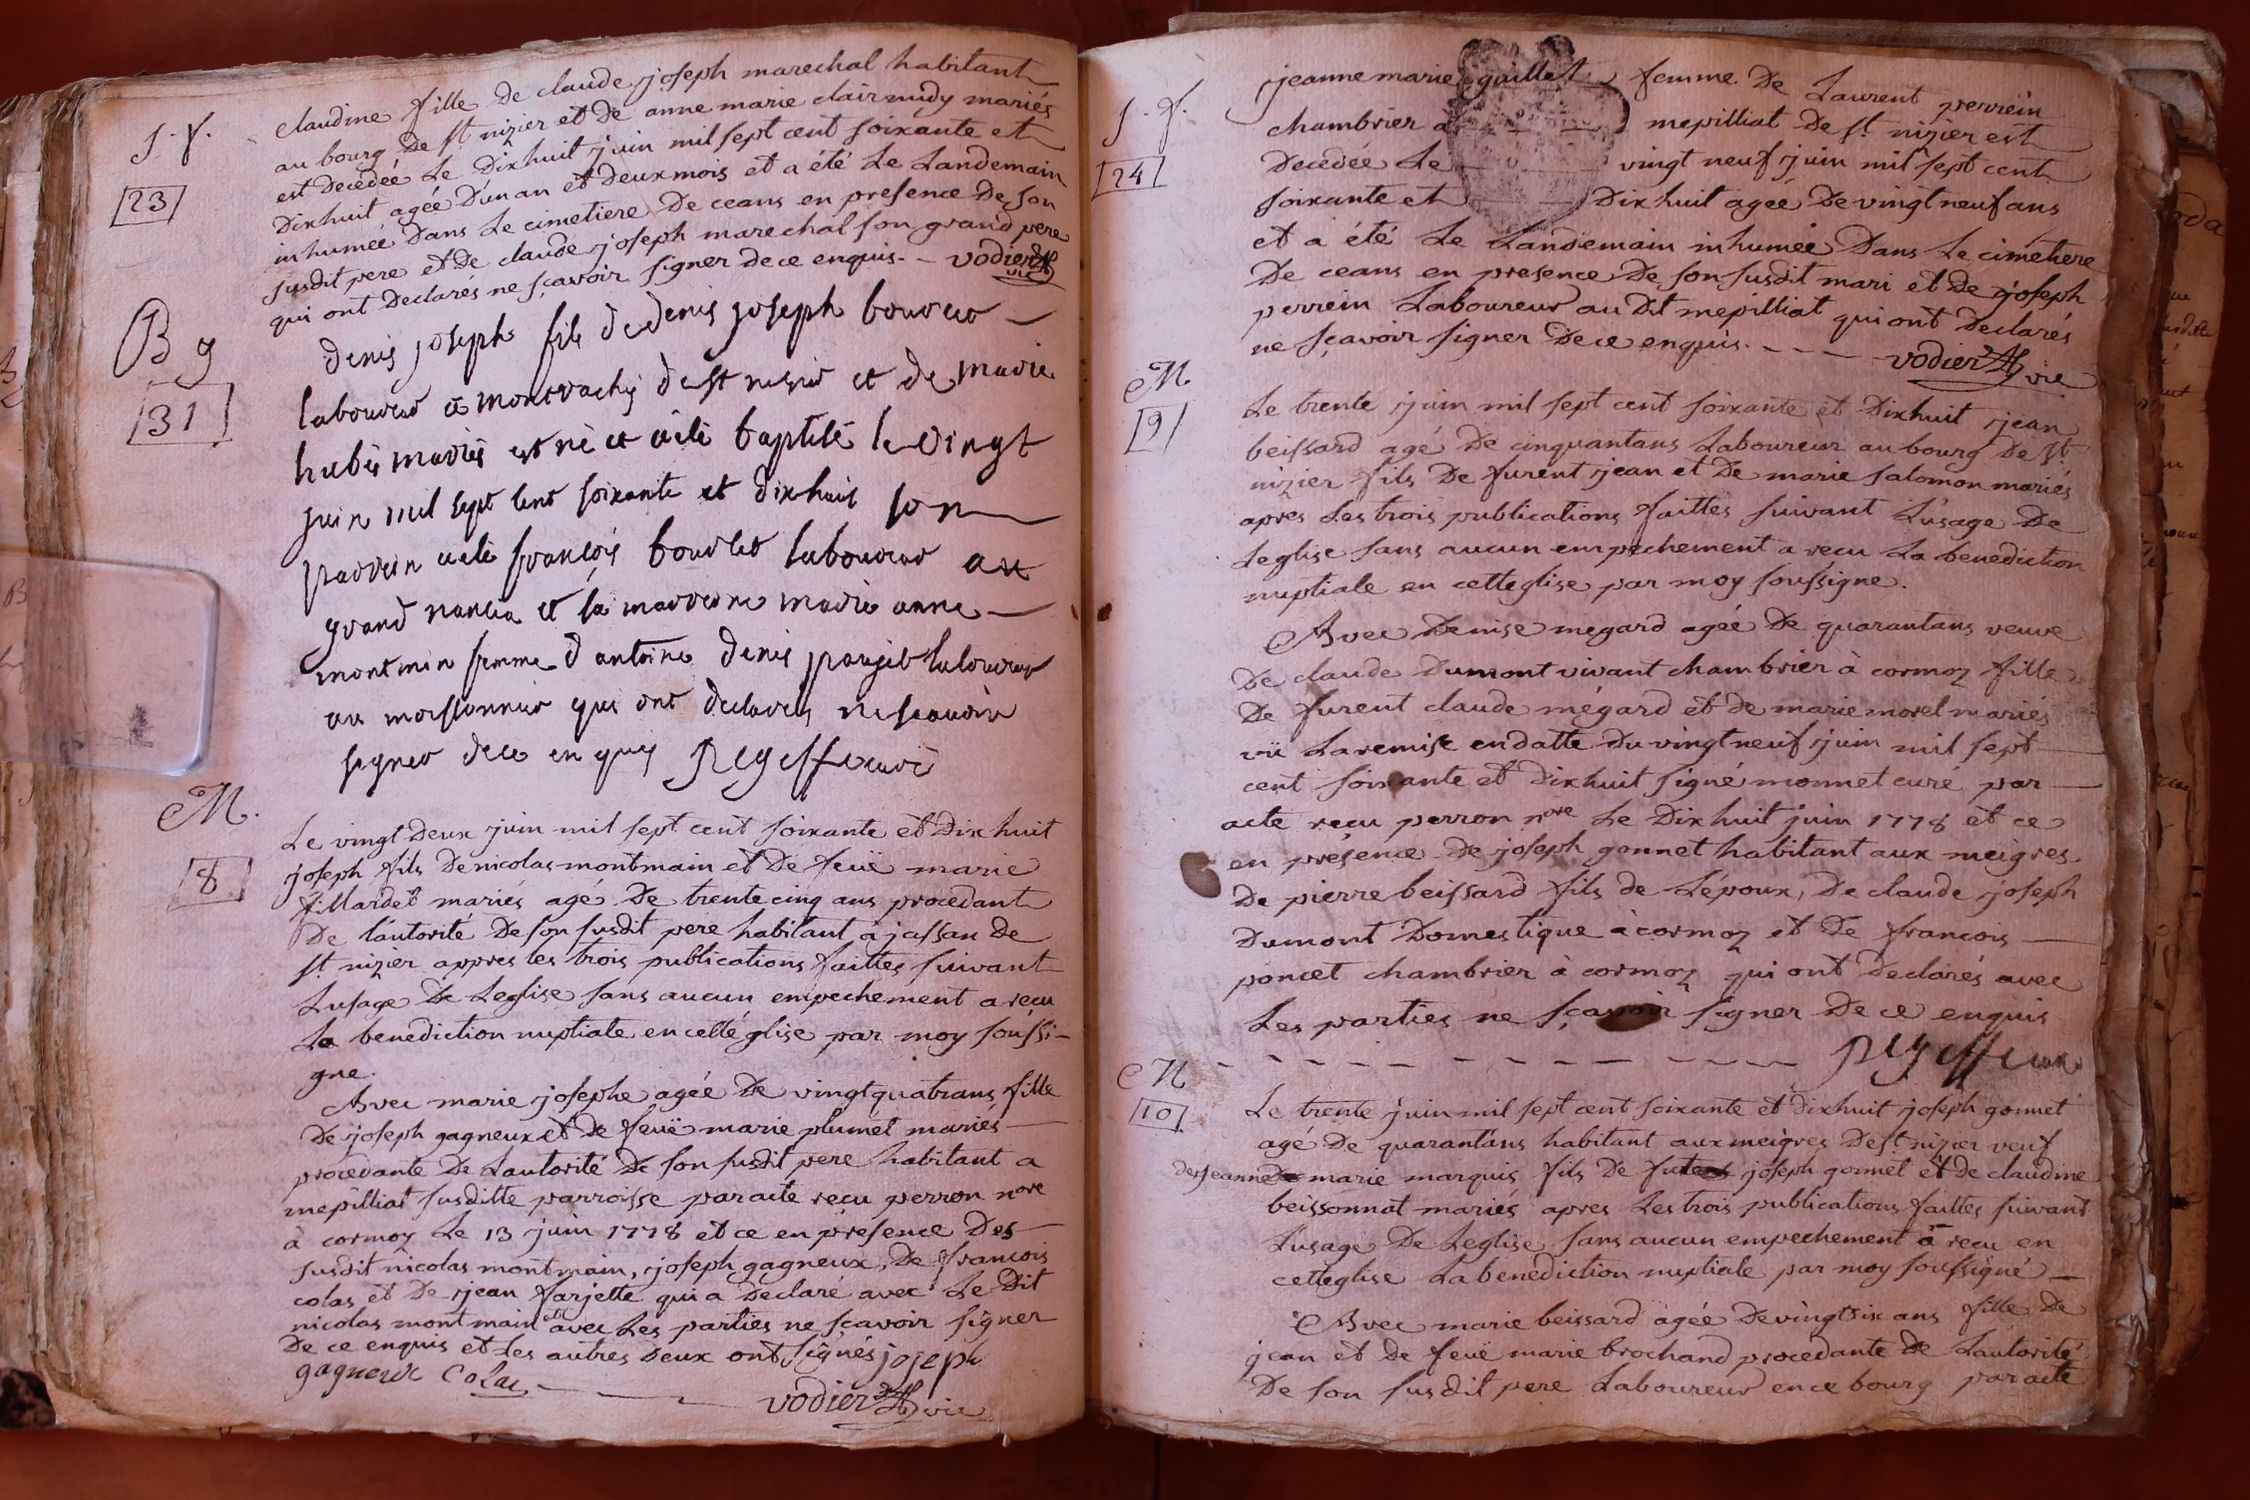 S. f.
23
claudine fille de claude joseph marechal habitant
au bourg de st nizier et de anne marie clair midy mariés
est decedeé Le dixhuit juin mil sept cent soixante et
dixhuit agée d'un an et deux mois et a été Le Landemain
inhumeé dans Le cimetiere de ceans en presence de son
susdit pere et de claude joseph marechal son grand pere
qui ont declarés ne sçavoir signer de ce enquis. - vodier vic
B g
31
denis joseph fils de denis joseph bourcet
laboureur a montrachy de st nizier et de marie
hubis mariés est né et a été baptisé le vingt
juin mil sept cent soixante et dixhuit son
parrein a eté françois bourcet laboureur au
grand nancia et sa marreine marie anne
montmin femme d antoine denis paujet laboureur
au moissonnier qui ont declarés ne scavoir
signer dece enquis curé
M.
8
Le vingt deux juin mil sept cent soixante et dix huit
joseph fils de nicolas montmain et de feuë marie
fillardet mariés agé de trente cinq ans procedant
de l'autorité de son susdit pere habitant à jassan de
st nizier appres les trois publications faittes suivant
Lusage de Leglise sans aucun empechement a recu
La benediction nuptiale en cette église par moy soussi-
gne.
Avec marie josephe agée de vingt quatrans fille
de joseph gagneux et de feuë marie plumet mariés
procedante de Lautorité de son susdit pere habitant a
mepilliat susditte parroisse par acte reçu perron nore
à cormoz Le 13 juin 1778 et ce en présence des
susdit nicolas montmain, joseph gagneux, de françois
colas et de jean farjette qui a declaré avec Le dit
nicolas montmain et avec Les parties ne sçavoir signer
de ce enquis et Les autres deux ont signés joseph
gagneux Colas
vodier vic
S. f.
24
jeanne marie guillet femme de Laurent perrein
chambrier a mepilliat de st nizier est
decedée Le vingt neuf juin mil sept cent
soixante et dixhuit agée de vingt neuf ans
et a été Le Landemain inhumeé dans Le cimetiere
de ceans en presence de son susdit mari et de joseph
perrein Laboureur au dit mepilliat qui ont declarés
ne sçavoir signer de ce enquis. - - - - vodier vic
M.
9
Le trente juin mil sept cent soixante et dixhuit jean
beissard agé de cinquantans Laboureur au bourg de st
nizier fils de furent jean et de marie salomon mariés
apres Les trois publications faittes suivant L'usage de
Leglise sans aucun empechement a recu La benediction
nuptiale en cetteglise par moy soussigne.
Avec denise megard agée de quarantans veuve
de claude dumont vivant chambrier à cormoz fille
de furent claude mégard et de marie morel mariés
vü La remise en datte du vingt neuf juin mil sept
cent soixante et dixhuit signé monnet curé par
acte reçu perron nore Le dixhuit juin 1778 et ce
en présence de joseph gonnet habitant aux meigres
de pierre beissard fils de L'époux, de claude joseph
dumont domestique à cormoz et de françois
poncet chambrier à cormoz qui ont declarés avec
Les parties ne sçavoir signer de ce enquis
curé
M
10
Le trente juin mil sept cent soixante et dixhuit joseph gonnet
agé de quarantans habitant aux meigres de st nizier veuf
de jeanne marie marquis fils de joseph gonnet et de claudine
beissonnat mariés apres Les trois publications faittes suivant
L'usage de Leglise sans aucun empechement a recu en
cetteglise La benediction nuptiale par moy soussigné
Avec marie beissard agée de vingt six ans fille de
jean et de feuë marie brochand procedante de Lautorité
de son susdit pere Laboureur en ce bourg par acte